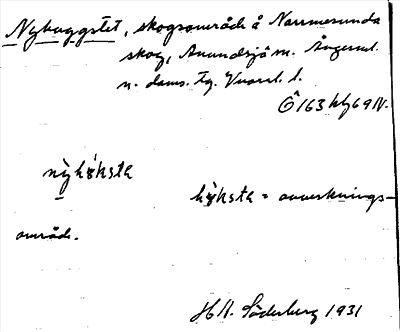 Nybyggstet, skogsområde å Narmesunda
skog, Anundsjö sn. Ångerml.
n. doms. Tg. l.
Ö 163 hf 69 N.
nỳhöksta
höksta = avverknings-
område.
H. Söderberg 1931